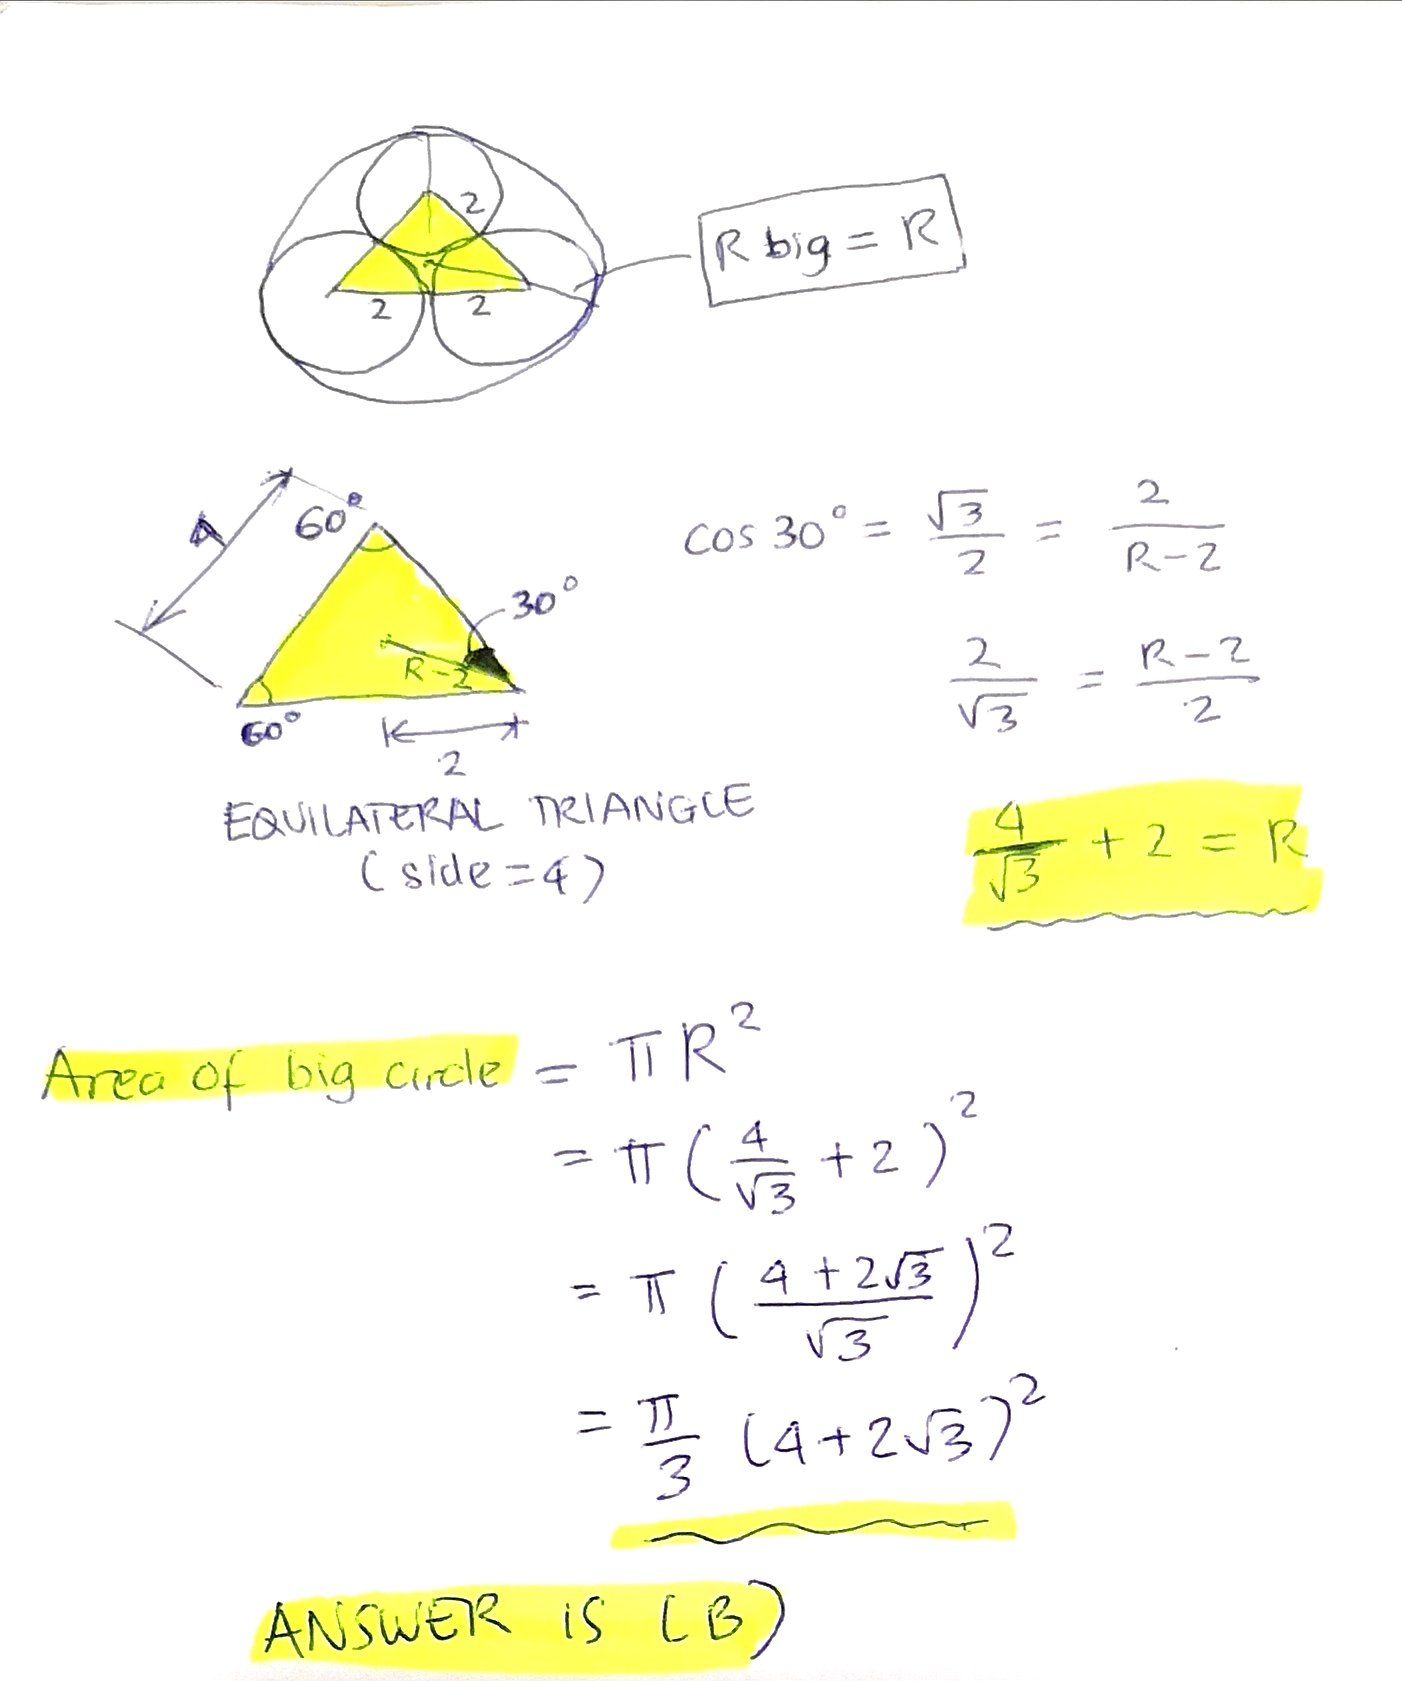 2
2 2
R big = R
4
60°
30°
R-2
60°
2
EQUILATERAL TRIANGLE
(side = 4)
cos 30° = √3/2 = 2/(R-2)
2/√3 = (R-2)/2
4/√3 + 2 = R
Area of big circle = π R²
= π (4/√3 + 2)²
= π ((4 + 2√3)/√3)²
= π/3 (4 + 2√3)²
ANSWER IS (B)